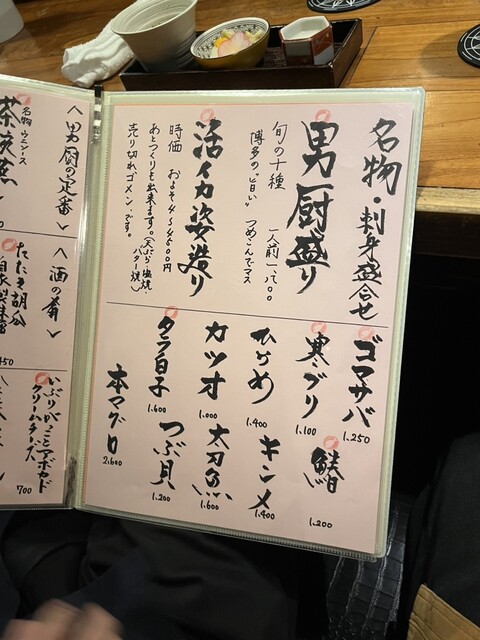 名物・刺身盛合せ
男厨盛り
旬の十種 一人前 一、八〇〇
博多の"旨い"つめこんでマス
活イカ姿造り
時価 およそ4500円
あとつくりも出来ます。(天ぷら・塩焼・バター焼)
売り切れゴメン!です。
ゴマサバ
1.250
鰆
1.200
寒ブリ
1.100
キンメ
1.400
ひらめ
1.400
太刀魚
1.600
カツオ
1.000
つぶ貝
1.200
タラ白子
1.600
本マグロ
2.600
〈男厨の定番〉
名物 ウニソース
茶碗蒸
〈酒の肴〉
たたき胡瓜
450
いぶりがっことアボカド
クリームチーズ
700